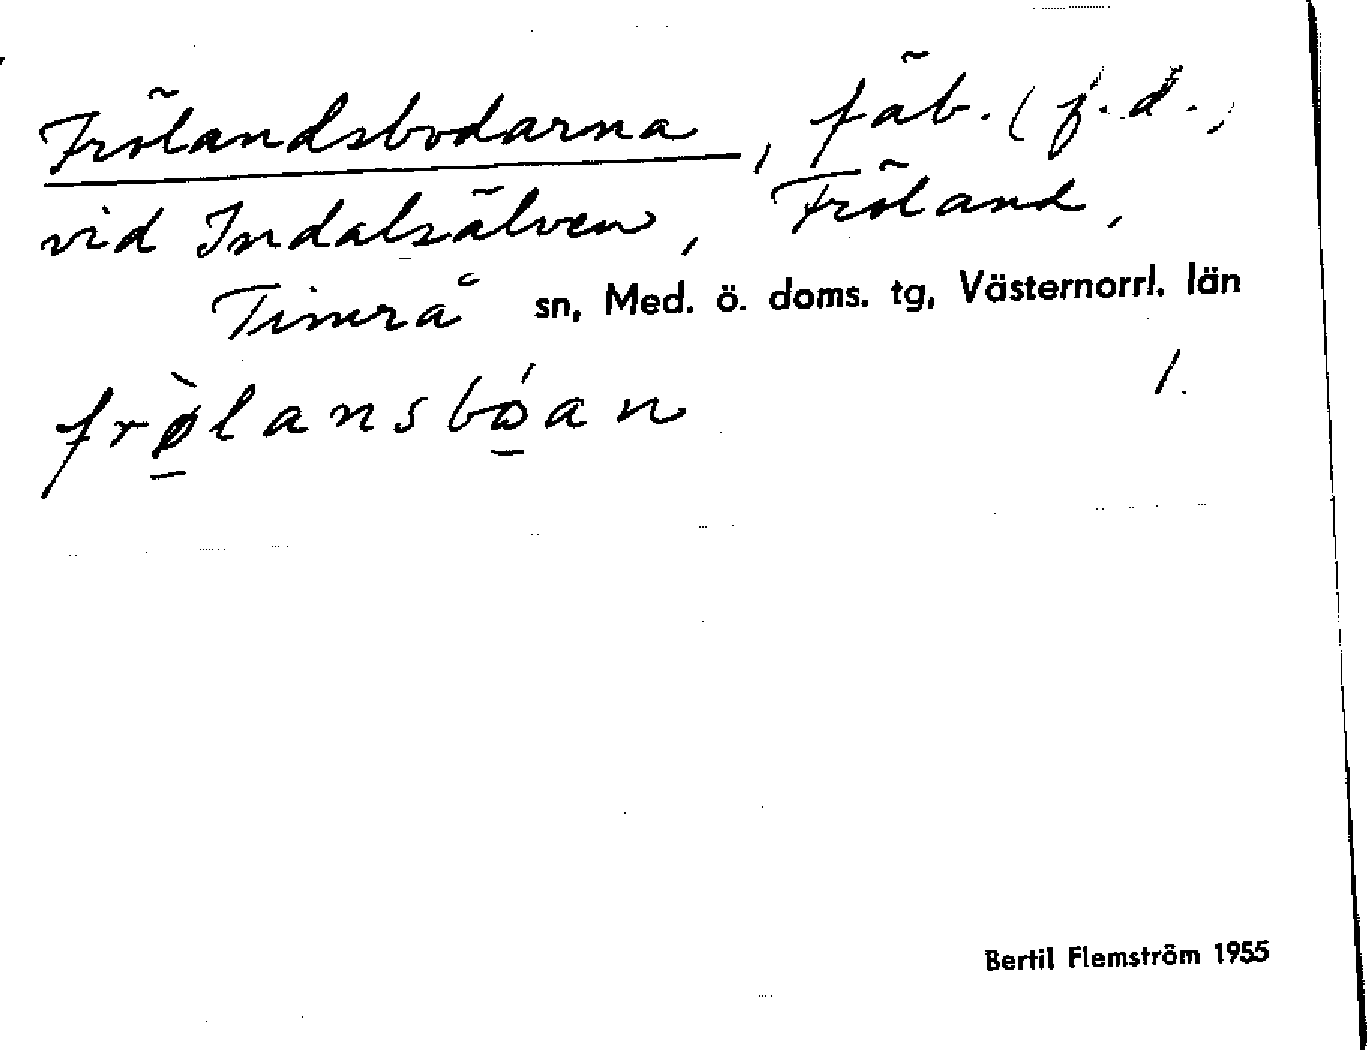 Frölandsbodarna, fäb. (f.d.,
vid Indalsälven, Fröland,
Timrå sn, Med. ö. doms. tg, Västernorrl. län
frø̀lansbóan
1.
Bertil Flemström 1955